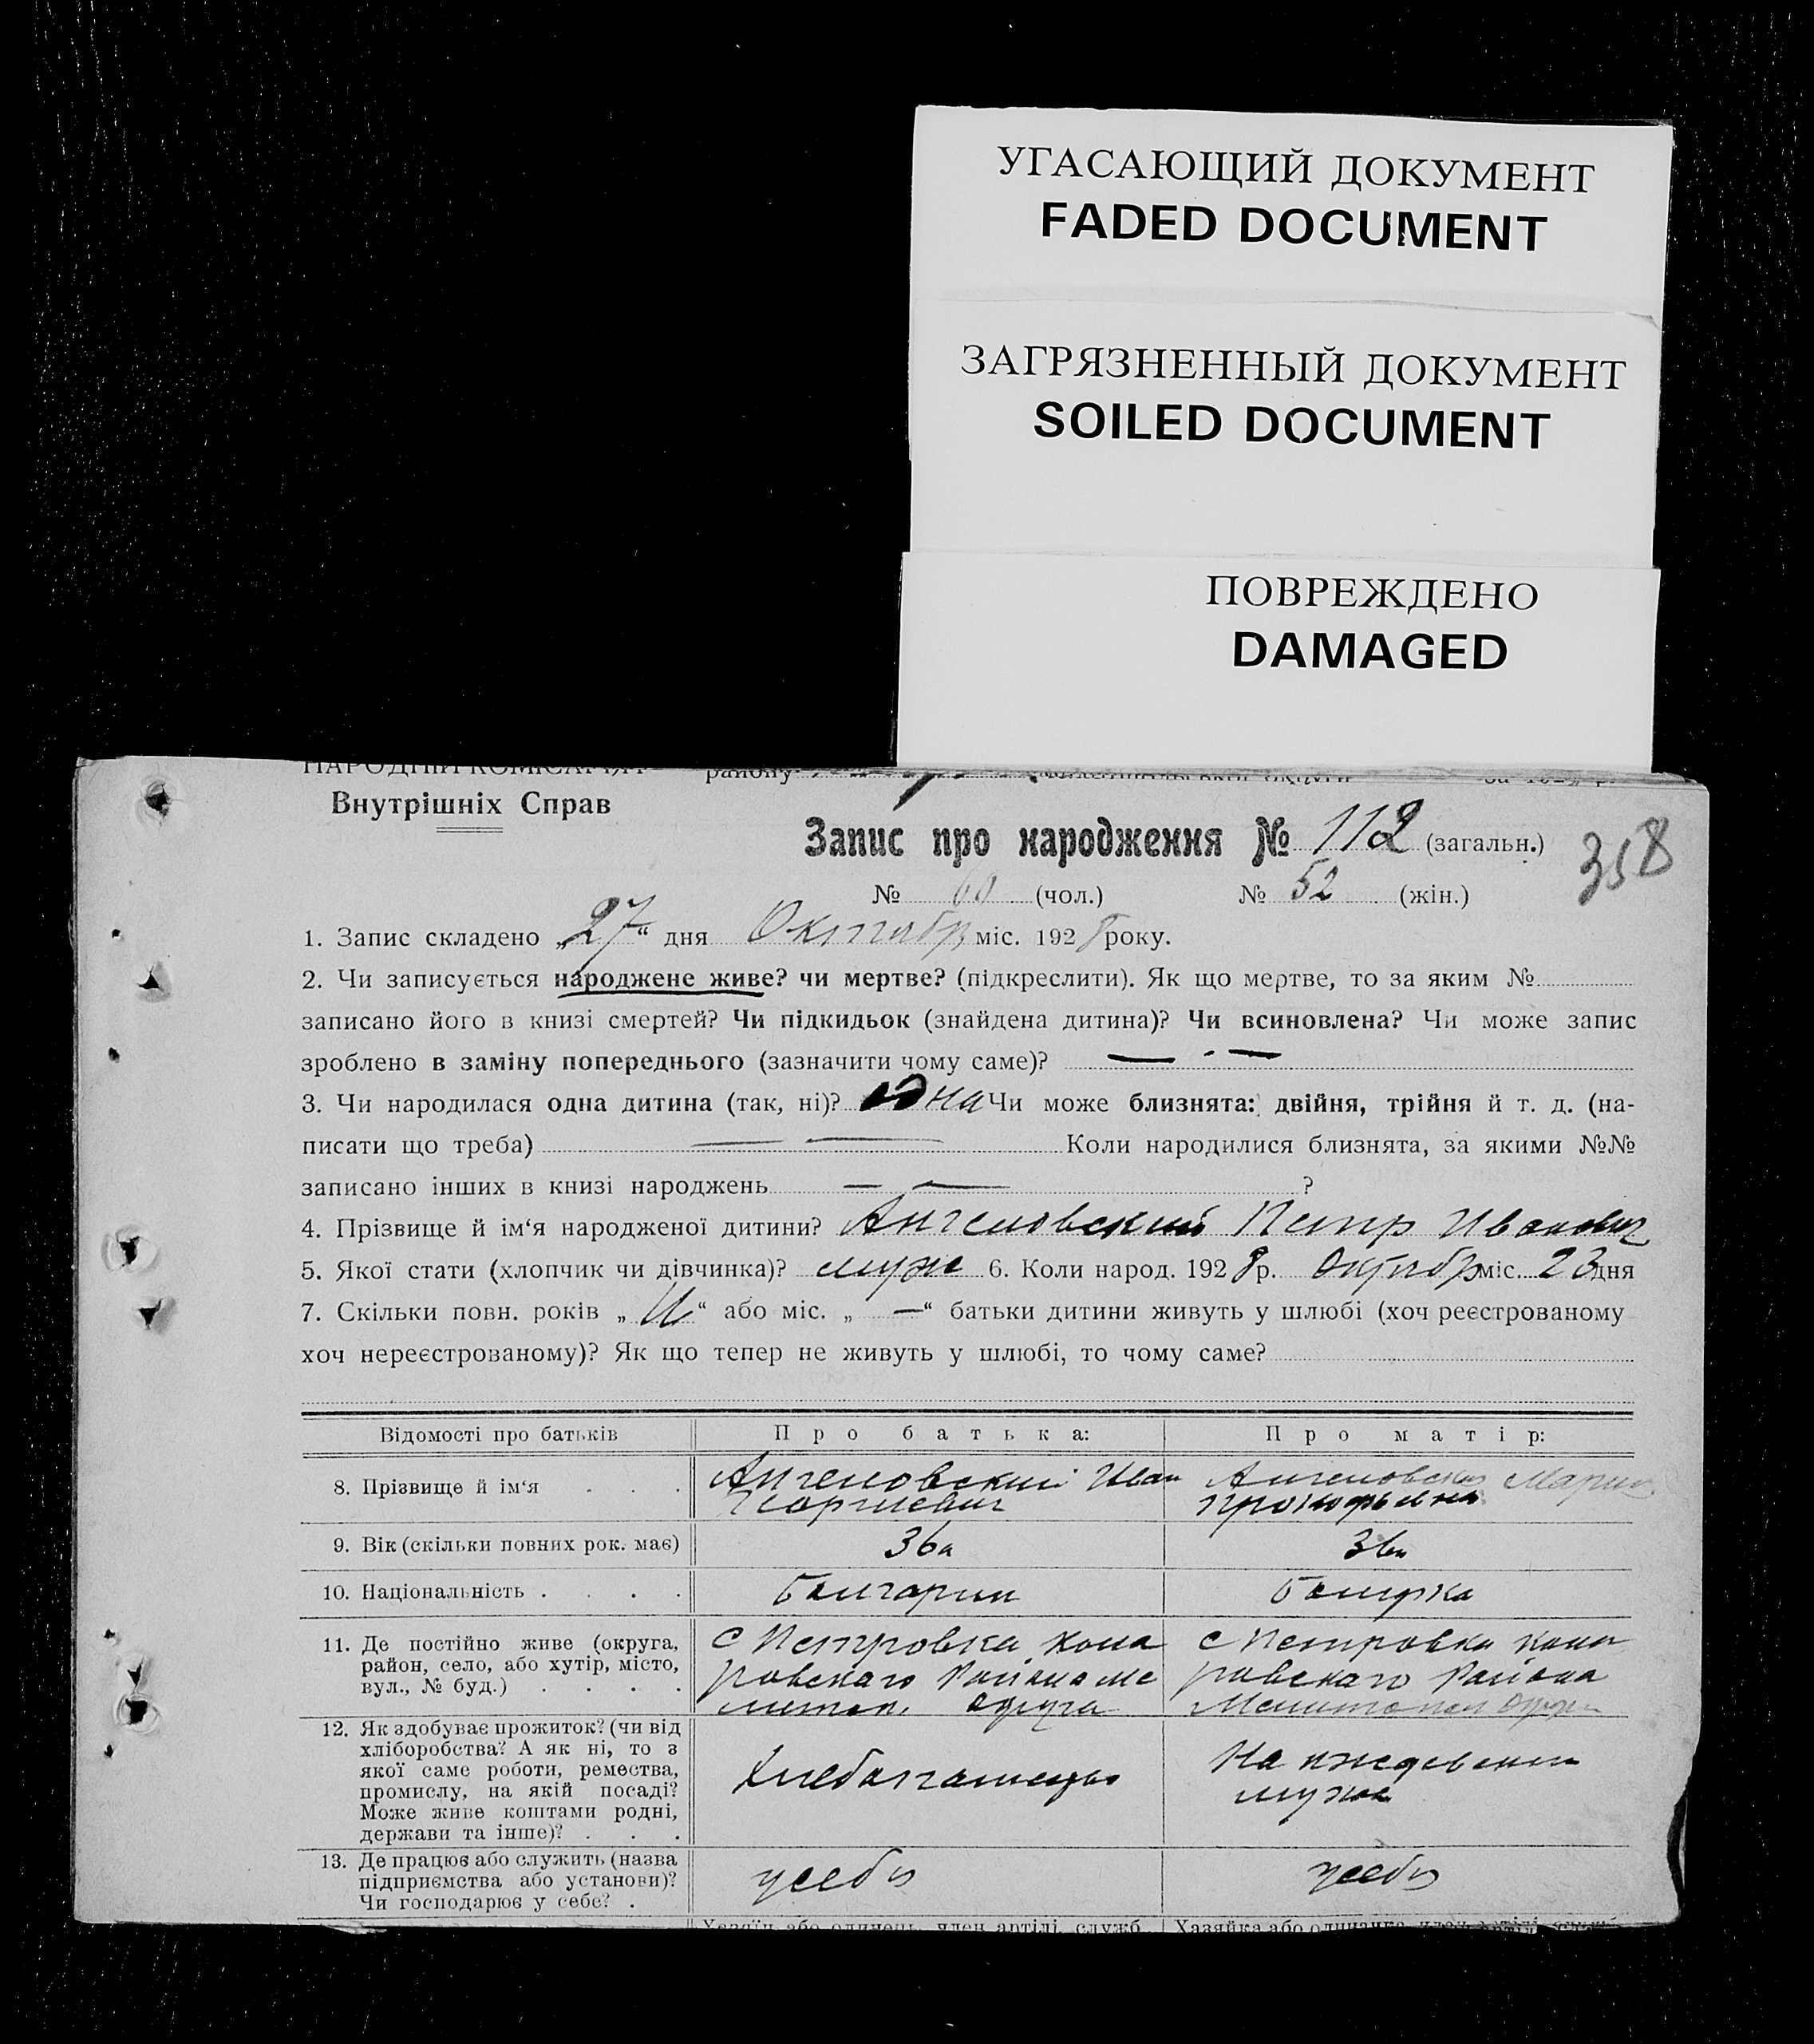 УГАСАЮЩИЙ ДОКУМЕНТ
FADED DOCUMENT
ЗАГРЯЗНЕННЫЙ ДОКУМЕНТ
SOILED DOCUMENT
ПОВРЕЖДЕНО
DAMAGED
НАРОДНІЙ КОМІСАРІЯТ району округи за 192 р.
Внутрішніх Справ
Запис про народження № 112 (загальн.) 358
№ 60 (чол.) № 52 (жін.)
1. Запис складено „27“ дня Октябр міс. 1928 року.
2. Чи записується народжене живе? чи мертве? (підкреслити). Як що мертве, то за яким №
записано його в книзі смертей? Чи підкидьок (знайдена дитина)? Чи всиновлена? Чи може запис
зроблено в заміну попереднього (зазначити чому саме)? — · —
3. Чи народилася одна дитина (так, ні)? одна Чи може близнята: двійня, трійня й т. д. (на-
писати що треба) — — Коли народилися близнята, за якими №№
записано інших в книзі народжень — — ?
4. Прізвище й ім‘я народженої дитини? Ангеловский Петр Иванович
5. Якої стати (хлопчик чи дівчинка)? муж 6. Коли народ. 1928 р. Октябр міс. 23 дня
7. Скільки повн. років „ “ або міс. „ — “ батьки дитини живуть у шлюбі (хоч реєстрованому
хоч нереєстрованому)? Як що тепер не живуть у шлюбі, то чому саме?
Відомості про батьків Про батька: Про матір:
8. Прізвище й ім‘я . . . Ангеловский Иван Ангеловская Мария
Георгиевич Прокофьевна
9. Вік (скільки повних рок. має) 36 36
10. Національність . . . . Болгарин Болгарка
11. Де постійно живе (округа, с Петровка Кома с Петровка Кома
район, село, або хутір, місто, ровскаго Района Ме ровскаго Района
вул., № буд.) . . . . литоп. округа Мелитопол округ
12. Як здобуває прожиток? (чи від
хліборобства? А як ні, то з
якої саме роботи, ремества, Хлебопашець На иждевении
промислу, на якій посаді? мужа
Може живе коштами родні,
держави та інше)? . . .
13. Де працює або служить (назва
підприємства або установи)? у себя у себя
Чи господарює у себе? .
Хазяїн або одинець, член артілі, служб. Хазяйка або одиначка, член артілі, служб